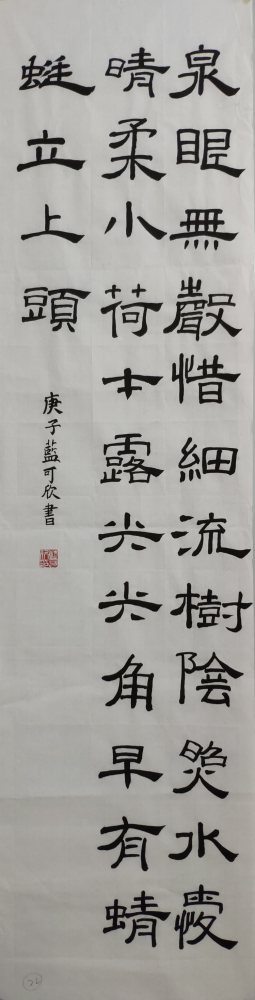 泉眼無聲惜細流樹陰照水愛
晴柔小荷才露尖尖角早有蜻
蜓立上頭
庚子藍可欣書
22